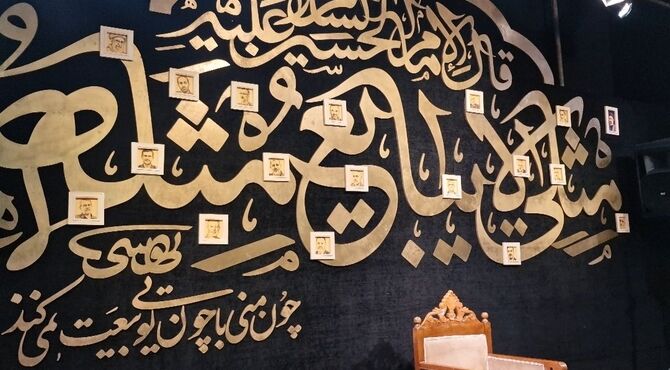 قال الإمام الحسین علیه السلام
مثلی لا یبایع مثله
چون منی با چون تویی بیعت نمی کند